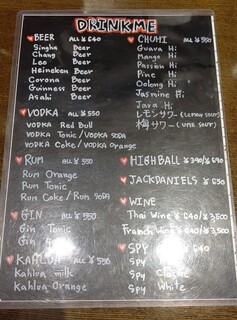 DRINKME
BEER ALL ¥640
Singha Beer
Chang Beer
Leo Beer
Heineken Beer
Corona Beer
Guinness Beer
Asahi Beer
VODKA ALL ¥550
VODKA Red Bull
VODKA Tonic / VODKA SODA
VODKA Coke / VODKA Orange
RUM ALL ¥550
Rum Orange
Rum Tonic
Rum Coke / Rum SODA
GIN ALL ¥550
Gin Tonic
Gin
KAHLUA ALL ¥550
Kahlua milk
Kahlua Orange
CHUHI ALL ¥550
Guava Hi
Mango Hi
Passion Hi
Pine Hi
Oolong Hi
Jasmine Hi
Java Hi
レモンサワー (LEMON SOUR)
梅サワー (UME SOUR)
HIGHBALL ¥390/¥690
JACKDANIELS ¥650
WINE
Thai Wine ¥640/¥3,500
Franch Wine ¥640/¥3,500
SPY ¥640
Spy
Spy Classic
Spy White